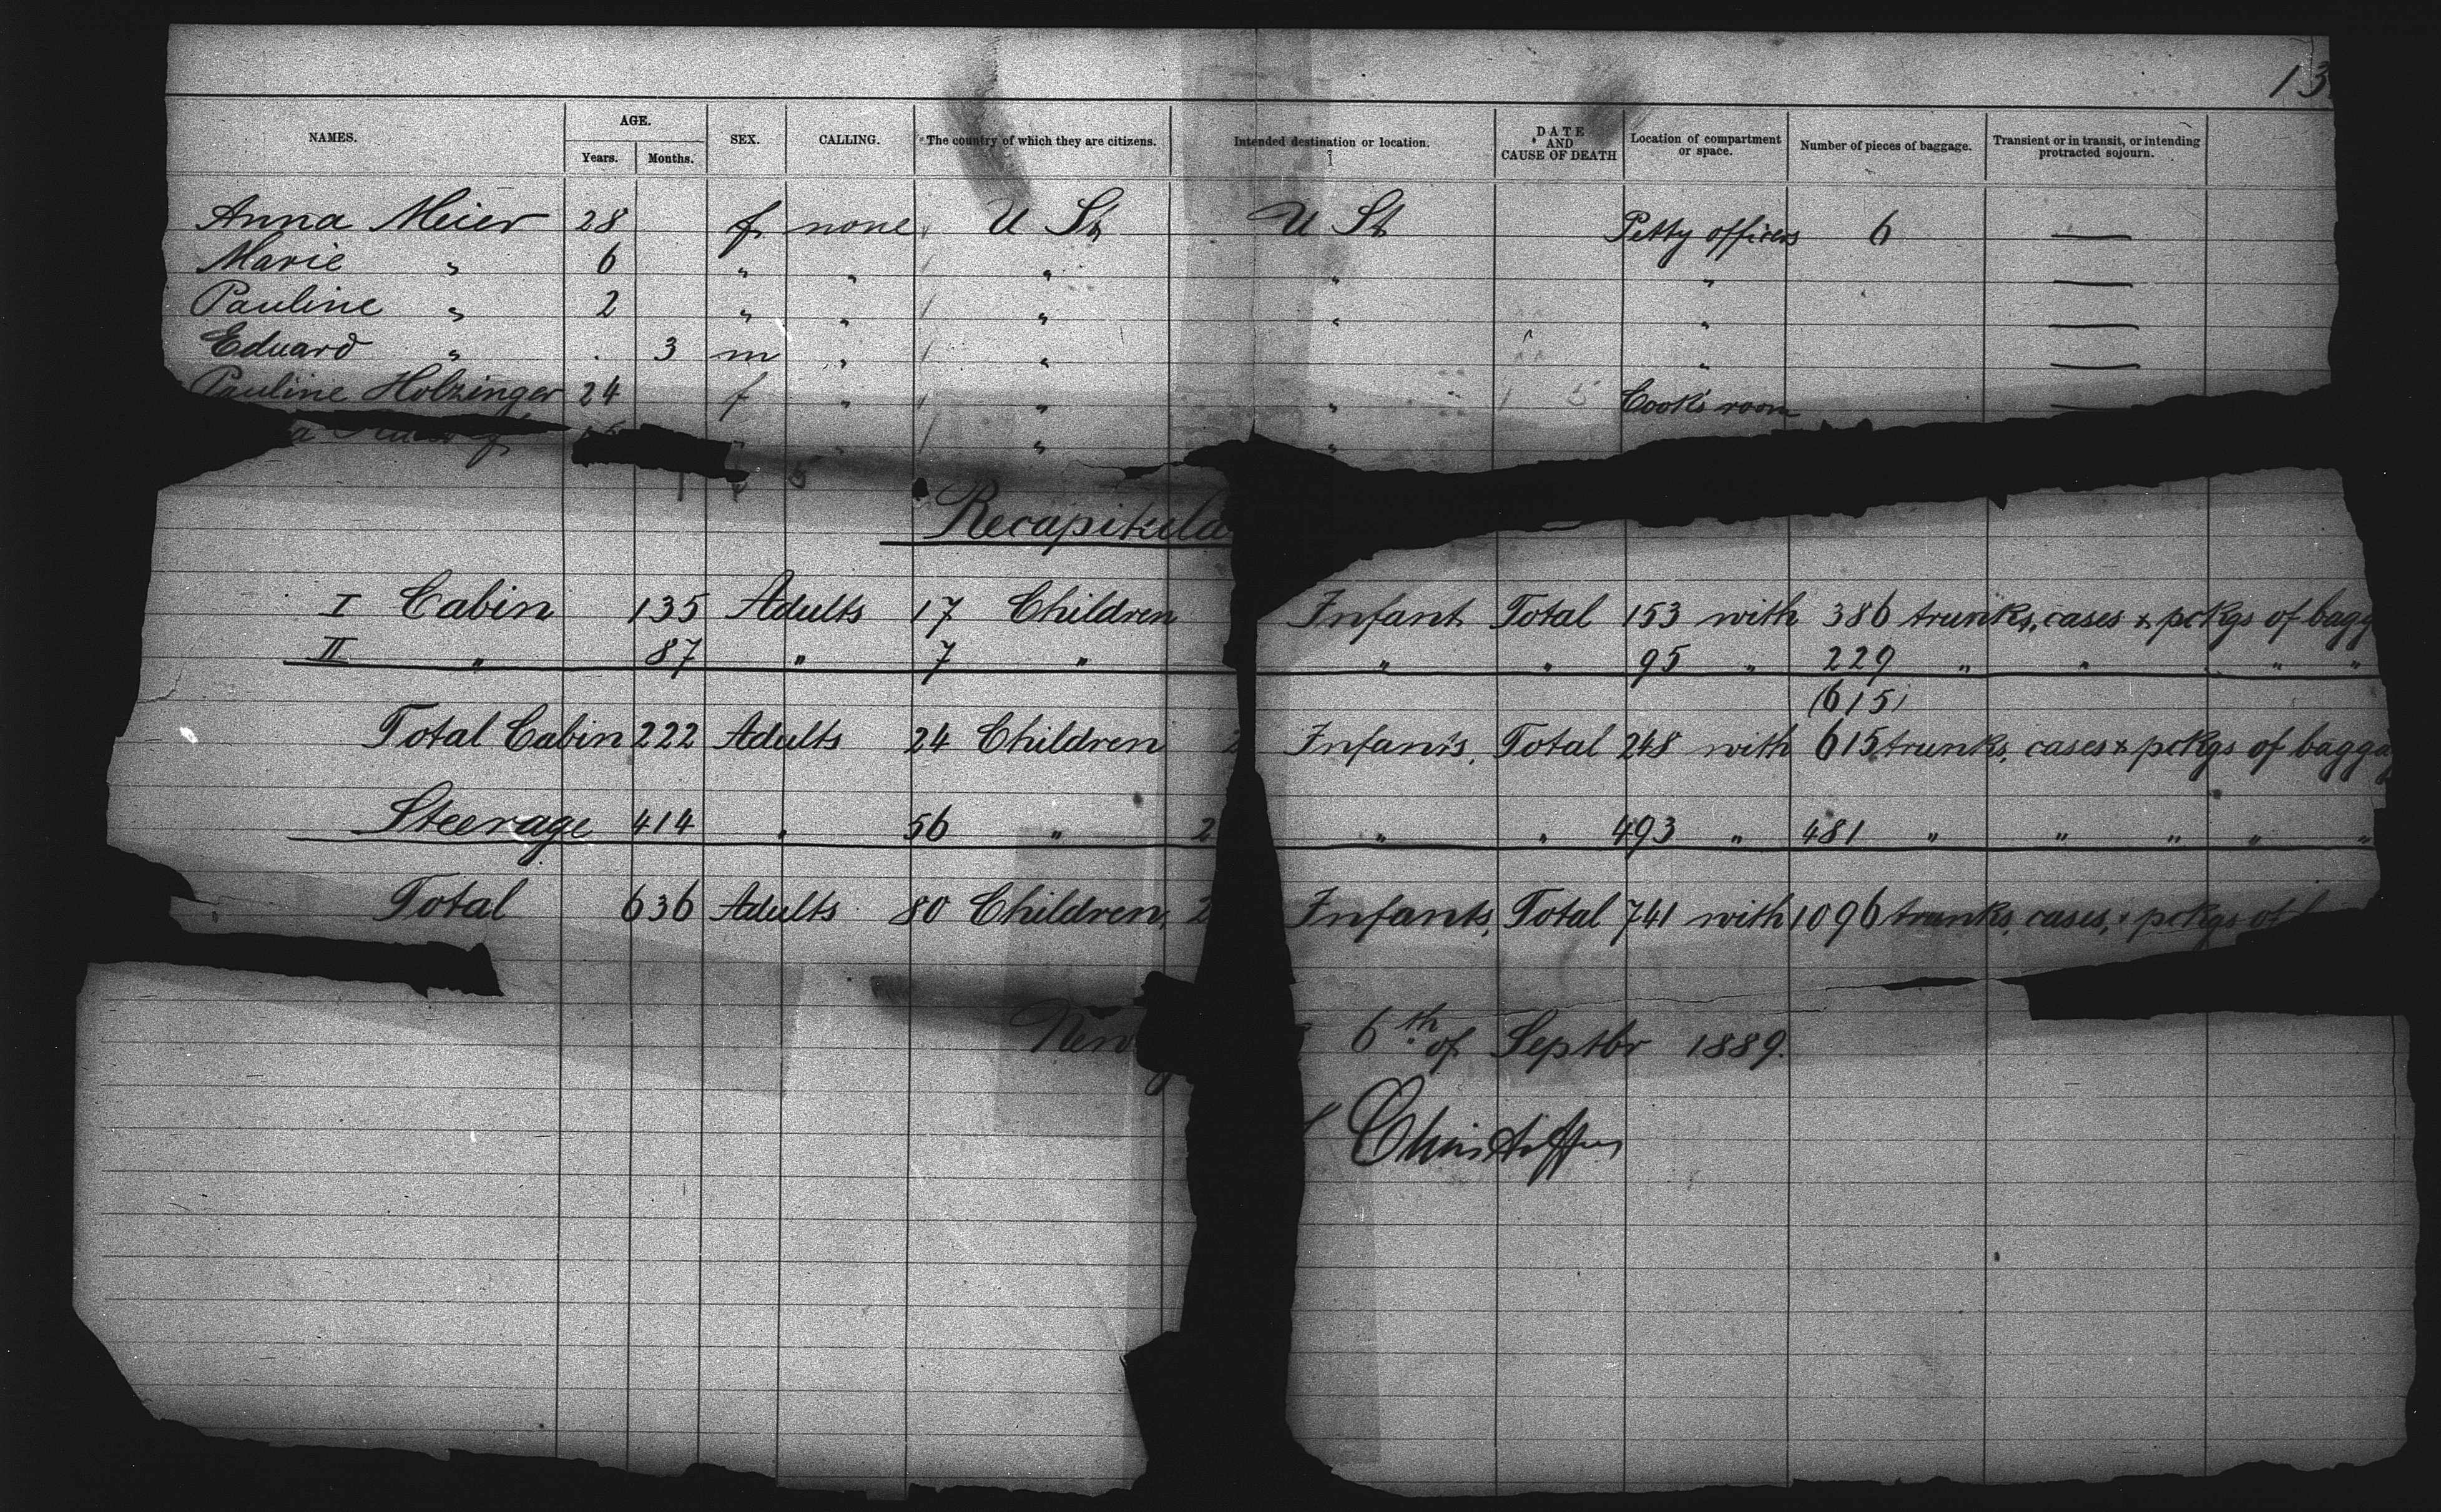 13
NAMES. AGE. SEX. CALLING. The country of which they are citizens. Intended destination or location. DATE AND CAUSE OF DEATH Location of compartment or space. Number of pieces of baggage. Transient or in transit, or intending protracted sojourn.
Years. Months.
Anna Meier 28 f. none U St U St Petty officers 6 —
Marie " 6 " " " " " —
Pauline " 2 " " " " " —
Eduard " . 3 m " " " " —
Pauline Holzinger 24 f " " " Cook's room —
" "
Recapitula
I Cabin 135 Adults 17 Children Infant Total 153 with 386 trunks, cases & pckgs of bagg
II " 87 " 7 " " " 95 " 229 " " " "
(615)
Total Cabin 222 Adults 24 Children 2 Infants, Total 248 with 615 trunks, cases & pckgs of bagga
Steerage 414 " 56 " 2 " " 493 " 481 " " " " "
Total 636 Adults 80 Children, 2 Infants, Total 741 with 1096 trunks, cases, & pckgs of
New 6th of Septbr 1889.
Christoffers